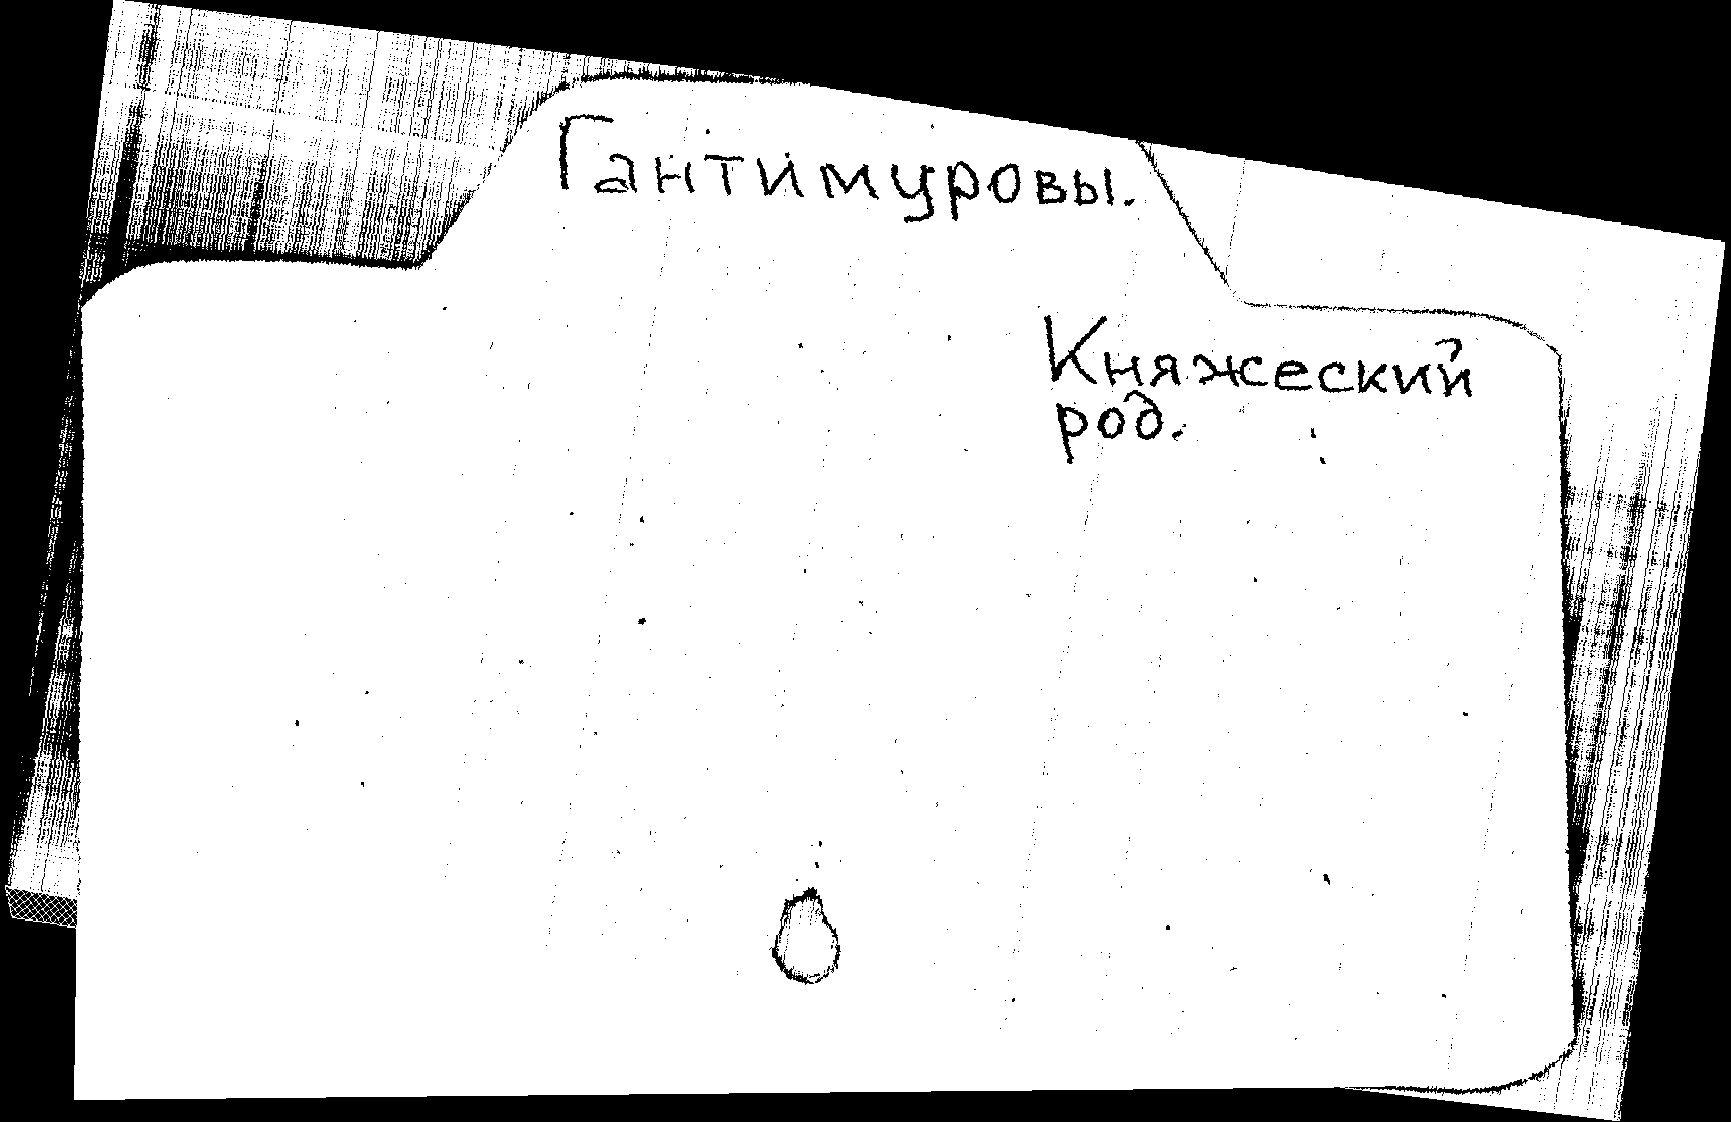 Гантимуровы.
Княжеский
род.